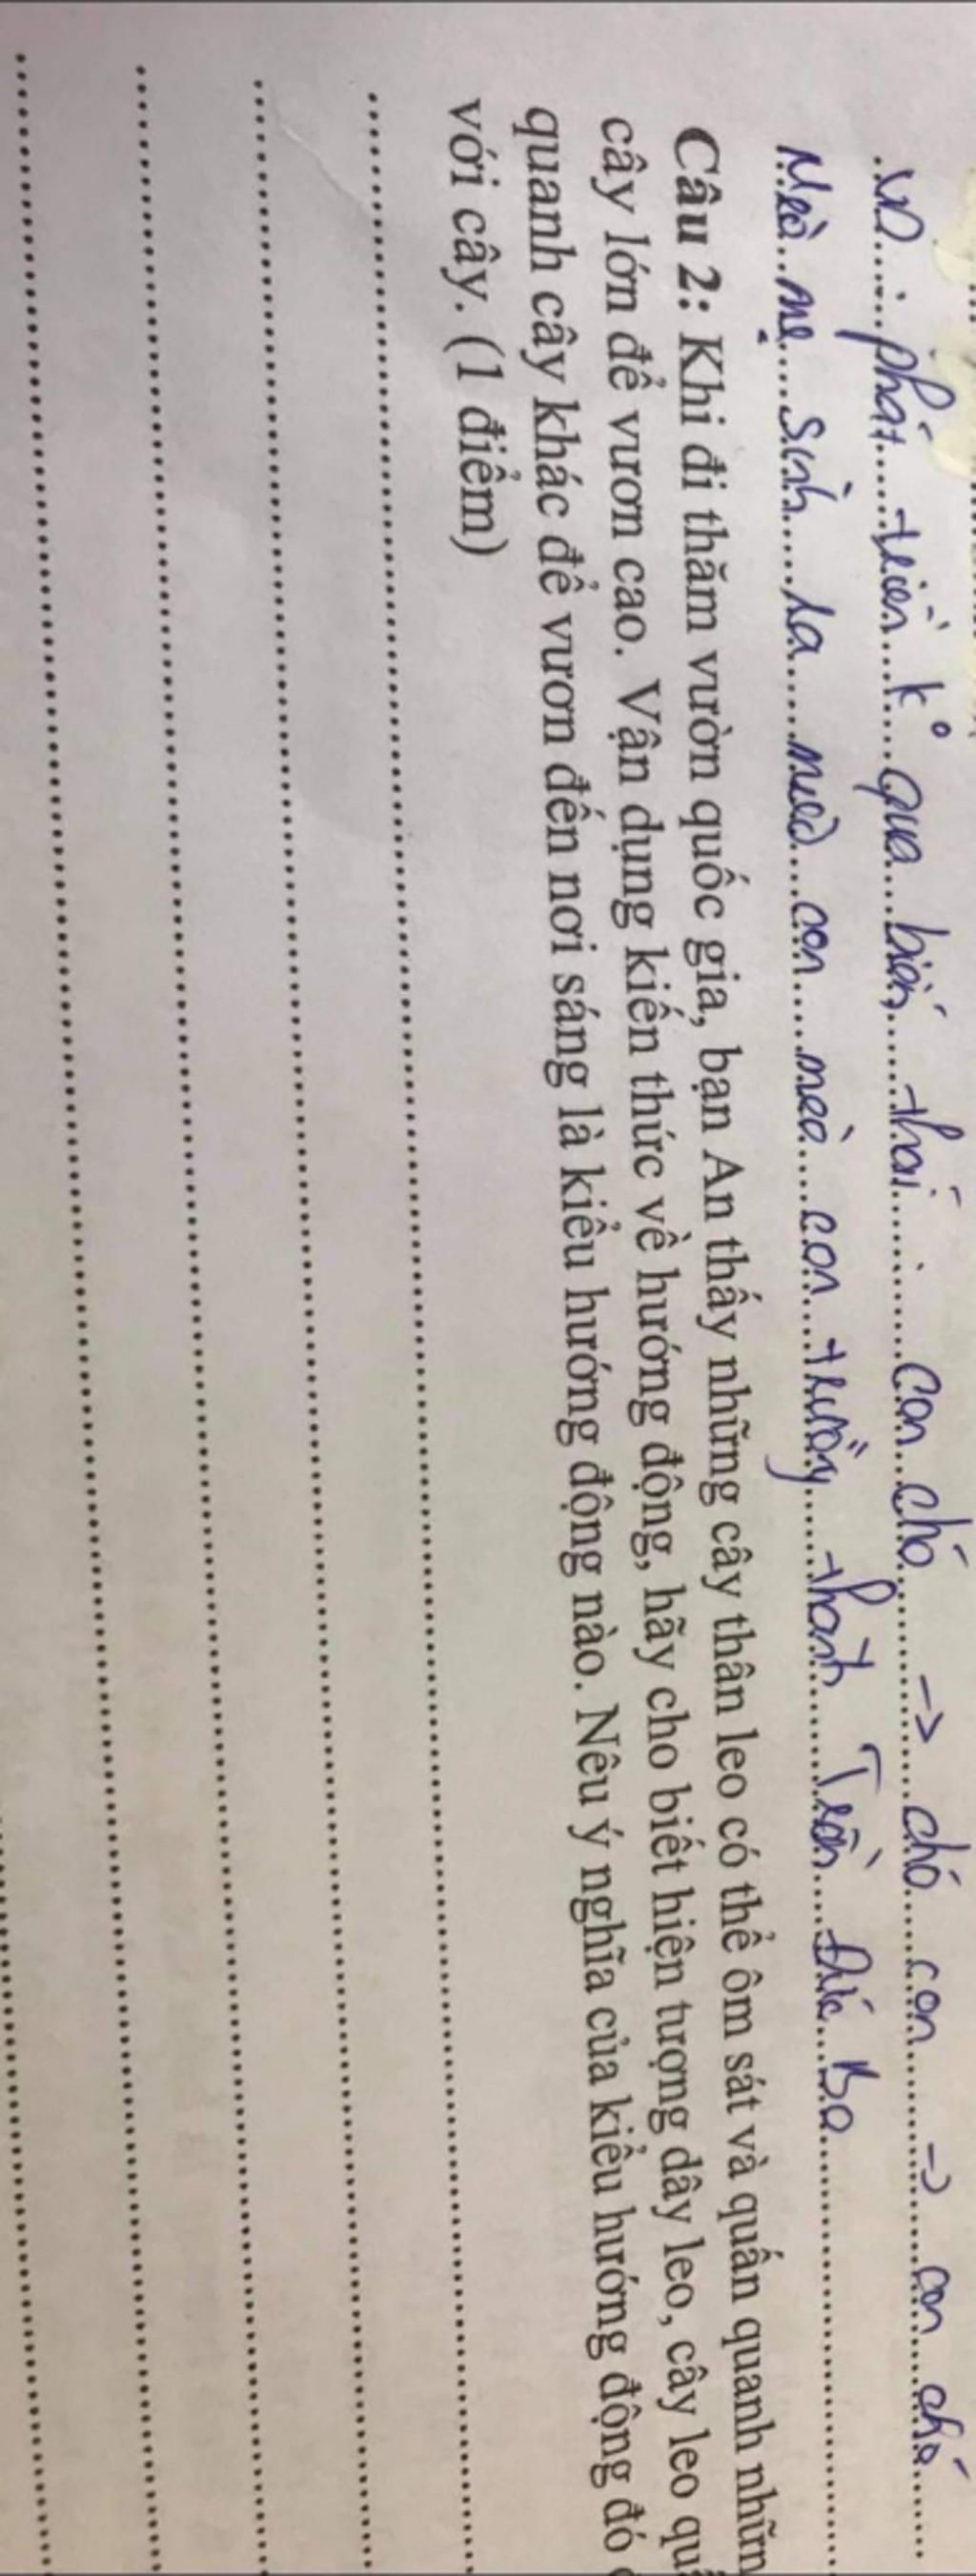 VD: phát triển k° qua biến thái: con chó → chó con → con chó
Mèo mẹ sinh ra mèo con mèo con trưởng thành Trần Đức Bo
Câu 2: Khi đi thăm vườn quốc gia, bạn An thấy những cây thân leo có thể ôm sát và quấn quanh
cây lớn để vươn cao. Vận dụng kiến thức về hướng động, hãy cho biết hiện tượng dây leo, cây leo
quanh cây khác để vươn đến nơi sáng là kiểu hướng động nào. Nêu ý nghĩa của kiểu hướng động đó
với cây. (1 điểm)